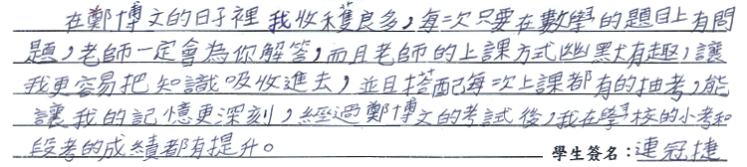 在鄭博文的日子裡我收穫良多,每次只要在數學的題目上有問
題,老師一定會為你解答,而且老師的上課方式幽默有趣,讓
我更容易把知識吸收進去,並且搭配每次上課都有的抽考,能
讓我的記憶更深刻,經過鄭博文的考試後,我在學校的小考和
段考的成績都有提升。 學生簽名:連冠捷